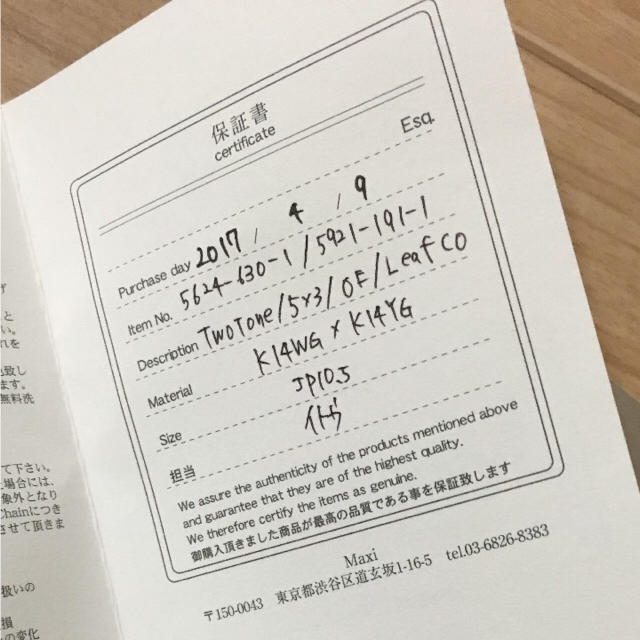 保証書
certificate
Esq.
Purchase day 2017 / 4 / 9
Item No. 5624-630-1 / 5921-191-1
Description TwoTone/5×3/OF/Leaf CO
Material K14WG × K14YG
Size JP10.5
担当 イトウ
We assure the authenticity of the products mentioned above
and guarantee that they are of the highest quality.
We therefore certify the items as genuine.
御購入頂きました商品が最高の品質である事を保証致します
Maxi
〒150-0043 東京都渋谷区道玄坂1-16-5 tel.03-6826-8383
と
い。
れを
致し
ます。
無料洗
て下さい。
場合には、
象外となり
Chainにつき
させて頂きま
扱いの
損
の変化